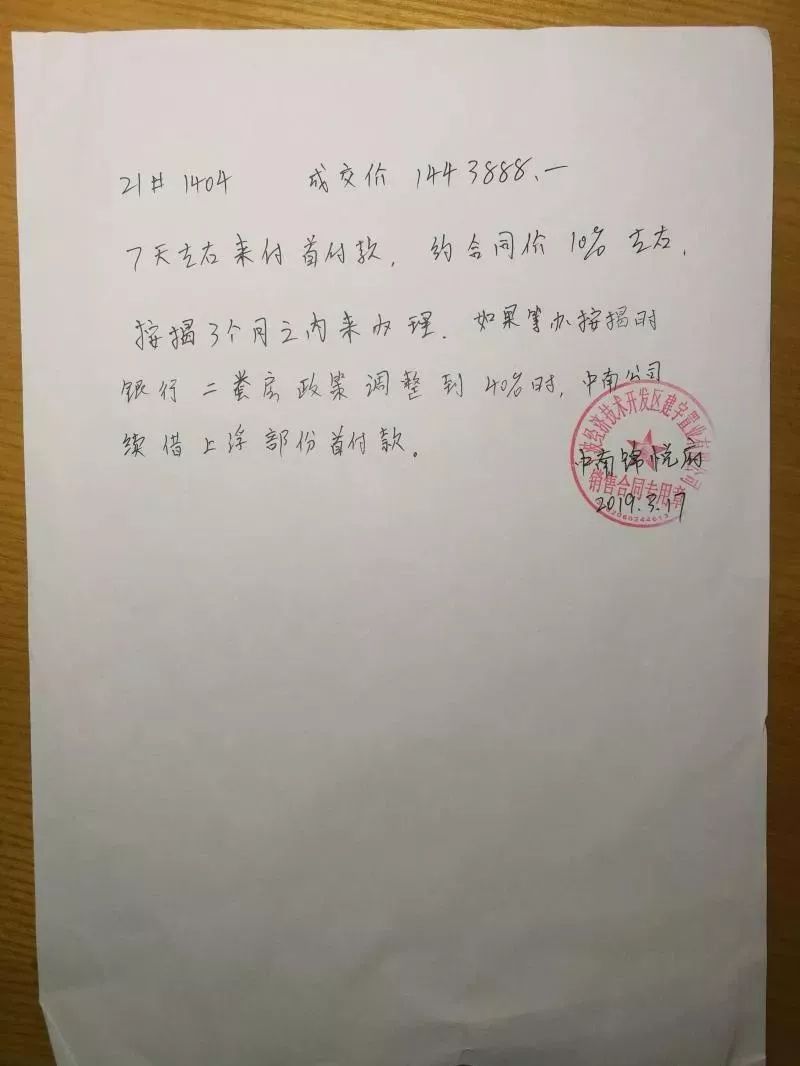 21# 1404 成交价 1443888.一
7天左右来付首付款, 约合同价10%左右,
按揭3个月之内来办理. 如果等办按揭时
银行二套房政策调整到40%时, 中南公司
续借上浮部份首付款。
经济技术开发区建宇置业有限公司
中南锦悦府
销售合同专用章
2019.3.17